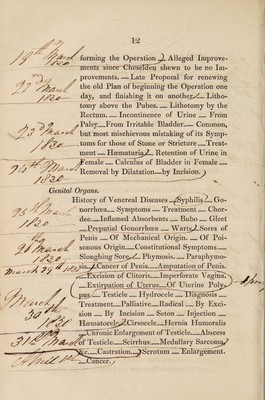 12
forming the Operation. Alleged Improve-
ments since Cheselden shewn to be no Im-
provements. — Late Proposal for renewing
the old Plan of beginning the Operation one
day, and finishing it on another. — Litho-
tomy above the Pubes. — Lithotomy by the
Rectum. — Incontinence of Urine — From
Palsy — From Irritable Bladder. — Common,
but most mischievous mistaking of its Symp-
toms for those of Stone or Stricture — Treat-
ment — Hæmaturia. — Retention of Urine in
Female — Calculus of Bladder in Female —
Removal by Dilatation — by Incision.
Genital Organs.
History of Venereal Diseases — Syphilis — Go-
norrhœa — Symptoms — Treatment — Chor-
dee — Inflamed Absorbents — Bubo — Gleet
— Preputial Gonorrhœa — Warts — Sores of
Penis — Of Mechanical Origin. — Of Poi-
sonous Origin — Constitutional Symptoms —
Sloughing Sore. — Phymosis. — Paraphymo-
sis — Cancer of Penis — Amputation of Penis.
— Excision of Clitoris — Imperforate Vagina.
— Extirpation of Uterus — Of Uterine Poly-
pus — Testicle — Hydrocele — Diagnosis —
Treatment — Palliative — Radical — By Exci-
sion — By Incision — Seton — Injection —
Hæmatocele — Cirsocele — Hernia Humoralis
— Chronic Enlargement of Testicle — Abscess
of Testicle — Scirrhus — Medullary Sarcoma,
&c. — Castration — Scrotum — Enlargement.
— Cancer.
19th March
1830
22nd March
1830
23rd March
1830
24th March
1830
25th March
1830
26th March
1830
March 29th 1830
March
30th
1830
31st March